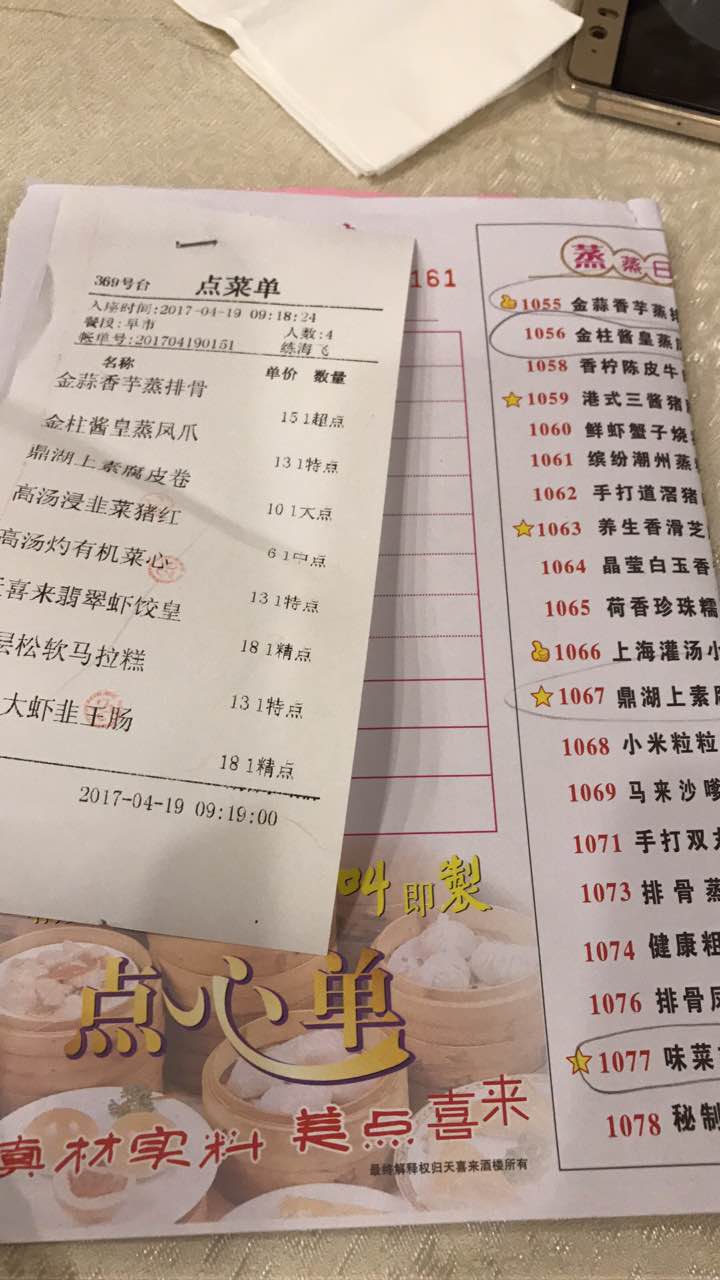 369号台 点菜单
入座时间:2017-04-19 09:18:24
餐段:早市 人数:4
帐单号:201704190151 练海飞
名称 单价 数量
金蒜香芋蒸排骨
15 1超点
金柱酱皇蒸凤爪
13 1特点
鼎湖上素腐皮卷
10 1大点
高汤浸韭菜猪红
6 1中点
高汤灼有机菜心
13 1特点
喜来翡翠虾饺皇
18 1精点
层松软马拉糕
13 1特点
大虾韭王肠
18 1精点
2017-04-19 09:19:00
161
叫即製
点心单
真材实料 美点喜来
最终解释权归天喜来酒楼所有
蒸蒸日
1055 金蒜香芋蒸排
1056 金柱酱皇蒸
1058 香柠陈皮牛
1059 港式三酱猪
1060 鲜虾蟹子烧
1061 缤纷潮州蒸
1062 手打道滘猪
1063 养生香滑芝
1064 晶莹白玉香
1065 荷香珍珠糯
1066 上海灌汤小
1067 鼎湖上素
1068 小米粒粒
1069 马来沙嗲
1071 手打双丸
1073 排骨蒸
1074 健康粗
1076 排骨凤
1077 味菜
1078 秘制